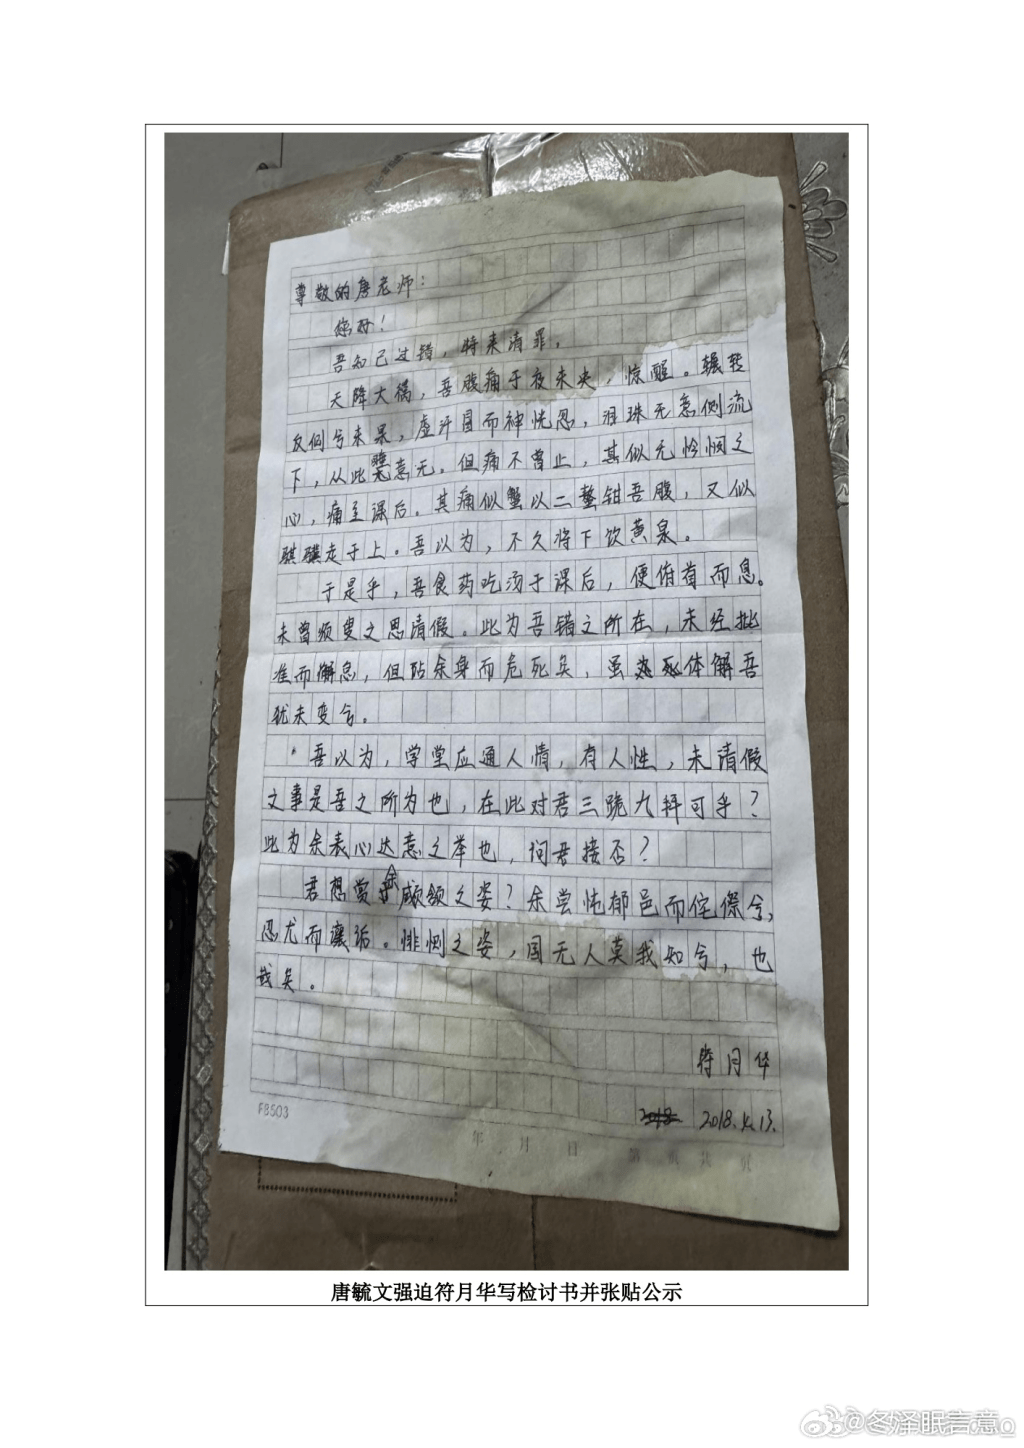 尊敬的唐老师：
您好！
吾知己过错，特来请罪。
天降大祸，吾腹痛于夜未央，惊醒。辗转
反侧兮未果，虚汗冒而神恍惚，泪珠无意侧流
下，从此意无。但痛不曾止，其似无怜悯之
心，痛至课后。其痛似蟹以二螯钳吾腹，又似
骐骥走于上。吾以为，不久将下饮黄泉。
于是乎，吾食药吃汤于课后，便俯首而息。
未曾须臾之思请假。此为吾错之所在，未经批
准而懈怠，但阽余身而危死矣，虽体解吾
犹未变兮。
吾以为，学堂应通人情，有人性，未请假
之事是吾之所为也，在此对君三跪九拜可乎？
此为余表心达意之举也，问君接否？
君想赏余顑颔之姿？余尝忳郁邑而侘傺兮，
忍尤而攘诟。悱恻之姿，国无人莫我知兮，也
哉矣。
符月华
2018.4.13.
F8503
年 月 日 第 页 共 页
唐毓文强迫符月华写检讨书并张贴公示
@冬泽眠言意